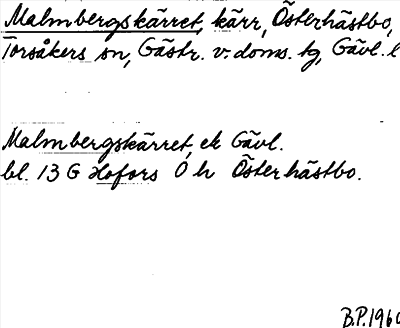 Malmbergskärret, kärr, Österhästbo,
Torsåkers sn, Gästr. v. doms. tg, Gävl. l
Malmbergskärret, ek Gävl.
bl. 13 G Hofors Ö h Österhästbo.
B.P. 1960